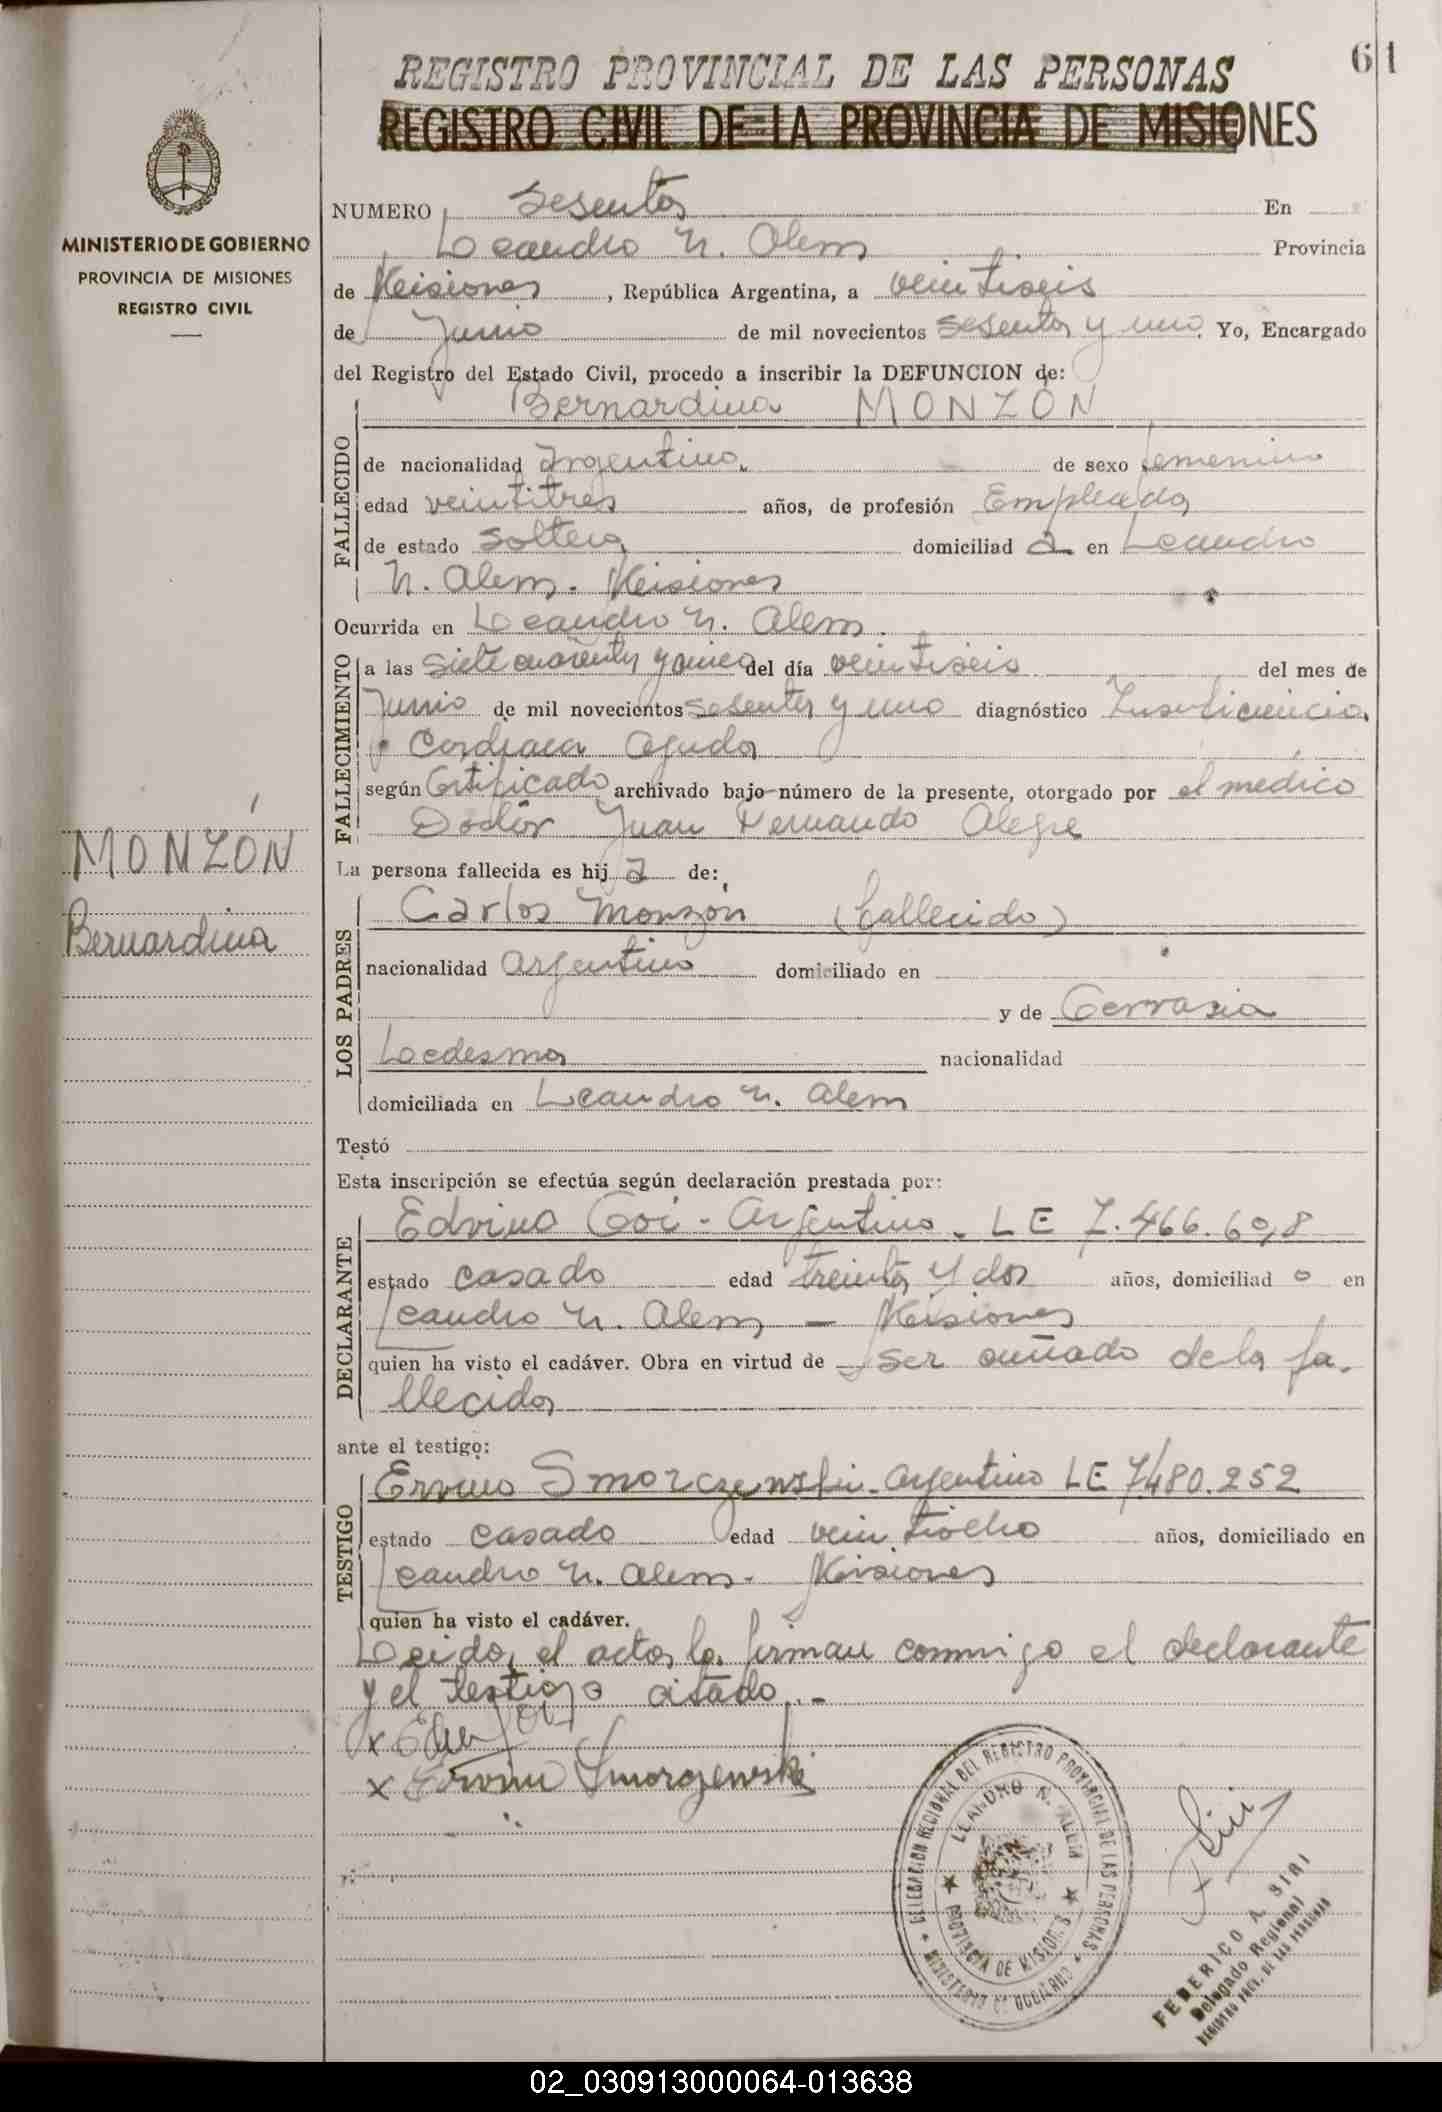 61
REGISTRO PROVINCIAL DE LAS PERSONAS
REGISTRO CIVIL DE LA PROVINCIA DE MISIONES
MINISTERIO DE GOBIERNO
PROVINCIA DE MISIONES
REGISTRO CIVIL
NUMERO Sesenta En
Leandro N. Alem Provincia
de Misiones, República Argentina, a veintiseis
de Junio de mil novecientos sesenta y uno. Yo, Encargado
del Registro del Estado Civil, procedo a inscribir la DEFUNCION de:
Bernardina MONZÓN
FALLECIDO
de nacionalidad Argentina. de sexo femenino
edad veintitres años, de profesión Empleada
de estado soltera domiciliad a en Leandro
N. Alem. Misiones
Ocurrida en Leandro N. Alem.
FALLECIMIENTO
a las siete cuarenta y cinco del día veintiseis del mes de
Junio de mil novecientos sesenta y uno diagnóstico Insuficiencia
Cardiaca Aguda
según Certificado archivado bajo número de la presente, otorgado por el médico
Doctor Juan Fernando Alegre
La persona fallecida es hij a de:
MONZÓN
Bernardina
LOS PADRES
Carlos Monzón (fallecido)
nacionalidad argentino domiciliado en
y de Gervasia
Ledesma nacionalidad
domiciliada en Leandro N. Alem
Testó
Esta inscripción se efectúa según declaración prestada por:
DECLARANTE
Edvino Goi - Argentino. LE 7.466.608
estado casado edad treinta y dos años, domiciliad o en
Leandro N. Alem - Misiones
quien ha visto el cadáver. Obra en virtud de ser cuñado de la fa-
llecida
ante el testigo:
TESTIGO
Ervino Smorczewski - argentino LE 7.480.252
estado casado edad veintiocho años, domiciliado en
Leandro N. Alem. Misiones
quien ha visto el cadáver.
Leida el acta, la firman conmigo el declarante
y el testigo citado.-
x Ervino Smorczewski
DELEGACION REGIONAL DEL REGISTRO PROVINCIAL DE LAS PERSONAS
LEANDRO N. ALEM
PROVINCIA DE MISIONES
MINISTERIO DE GOBIERNO
FEDERICO A. SIRI
Delegado Regional
REGISTRO PROV. DE LAS PERSONAS
02_030913000064-013638